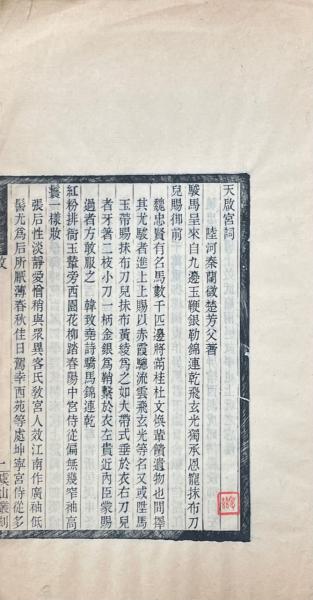 天啟宮詞
陸河秦蘭徵楚芳父著
駿馬呈來自九邊玉鞭銀勒錦連乾飛玄光獨承恩寵抹布刀
兒賜御前
魏忠賢有名馬數千匹邊將滿桂杜文煥輩饋遺物也問擇
其尤駿者進上上賜以赤霞驄流雲飛玄光等名又或陞馬
玉帶賜抹布刀兒抹布黃綾爲之如大帶式垂於衣右刀兒
者牙著二枝小刀一柄金銀爲鞘繫於衣左貴近內臣蒙賜
過者方敢服之 韓致堯詩驕馬錦連乾
紅粉排衙玉輦旁西園花柳踏春陽中宮侍從偏無幾窄袖高
鬟一樣妝
張后性淡靜愛憎稍與眾異客氏敎宮人效江南作廣袖低
髻尤爲后所厭薄春秋佳日駕幸西苑等處坤寧宮侍從多